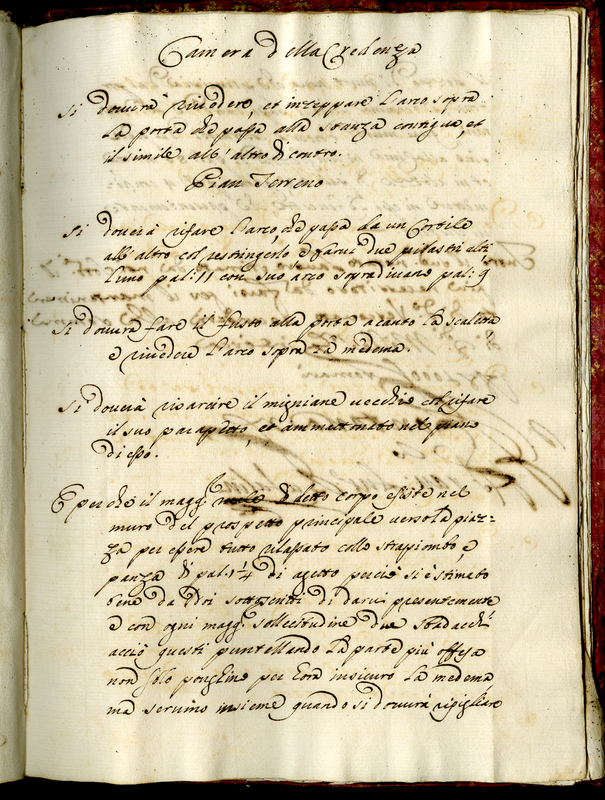 Camera della Credenza
Si dovrà rivedere, et inzeppare l'arco sopra
la porta che passa alla stanza contigua, et
il simile all'altro di contro.
Pian Terreno
Si doverà rifare l'arco, che passa da un Cortile
all'altro col restringerlo e farvi due pilastri alti
l'uno pal: 11 con suo arco sopra di vano pal: 9
Si dovrà fare il fusto alla porta acanto la scaletta
e rivedere l'arco sopra la medema.
Si doverà risarcire il migniane vecchio col rifare
il suo parapetto, et ammattonato nel piano
di esso.
E perche il magg.r male di detto corpo esiste nel
muro del prospetto principale verso la piaz-
za per essere tutto rilassato collo strapiombo, e
panza di pal: 1¼ di agetto perciò si è stimato
bene da Noi sottoscritti di darvi presentemente
e con ogni magg.r sollecitudine due sbadacchi
acciò questi puntellando la parte più offesa
non solo ponghino per hora in sicuro la medema
ma servino insieme quando si dovrà ripigliare